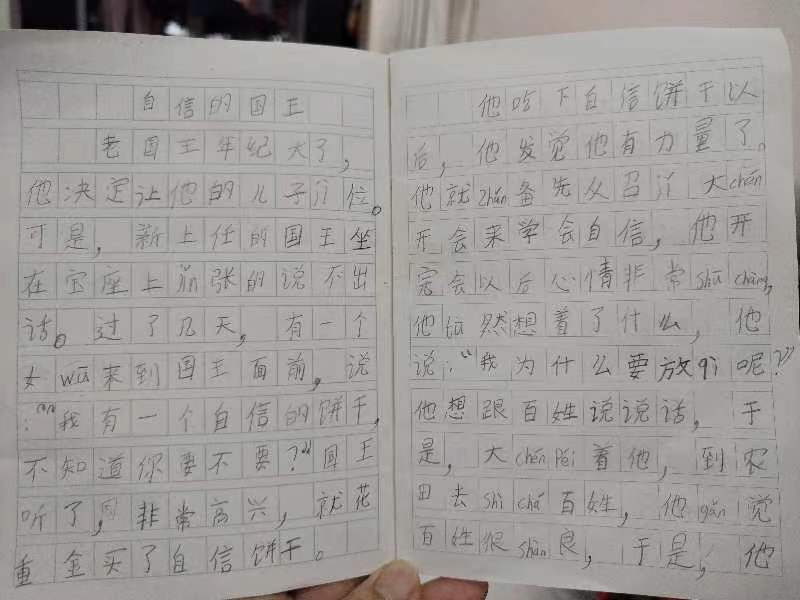 自信的国王
老国王年纪大了，
他决定让他的儿子 位。
可是，新上任的国王坐
在宝座上 张的说不出
话。过了几天，有一个
女wū来到国王面前，说
：“我有一个自信的饼干，
不知道你要不要？”国王
听了，非常高兴，就花
重金买了自信饼干。
他吃下自信饼干以
后，他发觉他有力量了。
他就zhǔn备先从召 大chén
开会来学会自信，他开
完会以后心情非常shū chàng，
他tū然想着了什么，他
说：“我为什么要放qì呢？”
他想跟百姓说说话，于
是，大chén péi着他，到农
田去shì chá百姓，他gǎn觉
百姓很shàn良，于是，他